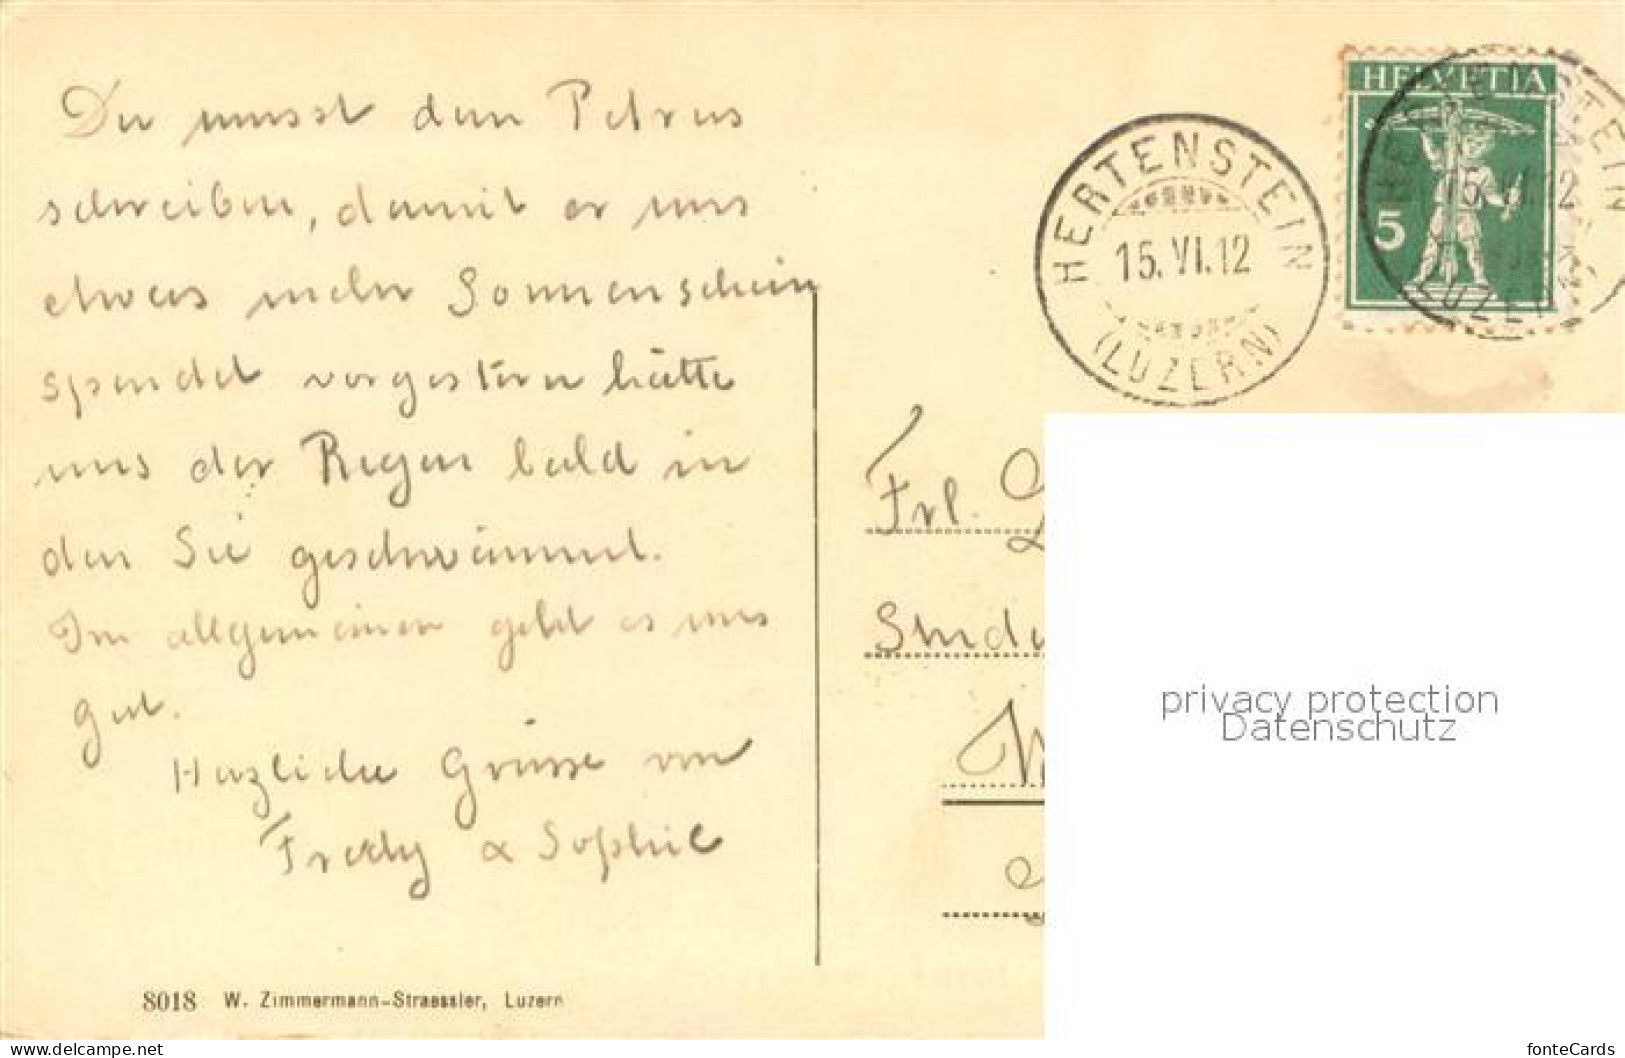 Du musst dem Petrus
schreiben, damit er uns
etwas mehr Sonnenschein
spendet vorgestern hätte
uns der Regen bald in
den See geschwämmt.
Im allgemeinen geht es uns
gut.
Herzliche Grüsse von
Fredy & Sophie
8018 W. Zimmermann-Straessler, Luzern
HERTENSTEIN
15.VI.12
(LUZERN)
HELVETIA
5
HERTENSTEIN
15.VI.12
LUZERN
Frl.
privacy protection
Datenschutz
www.delcampe.net
fonteCards